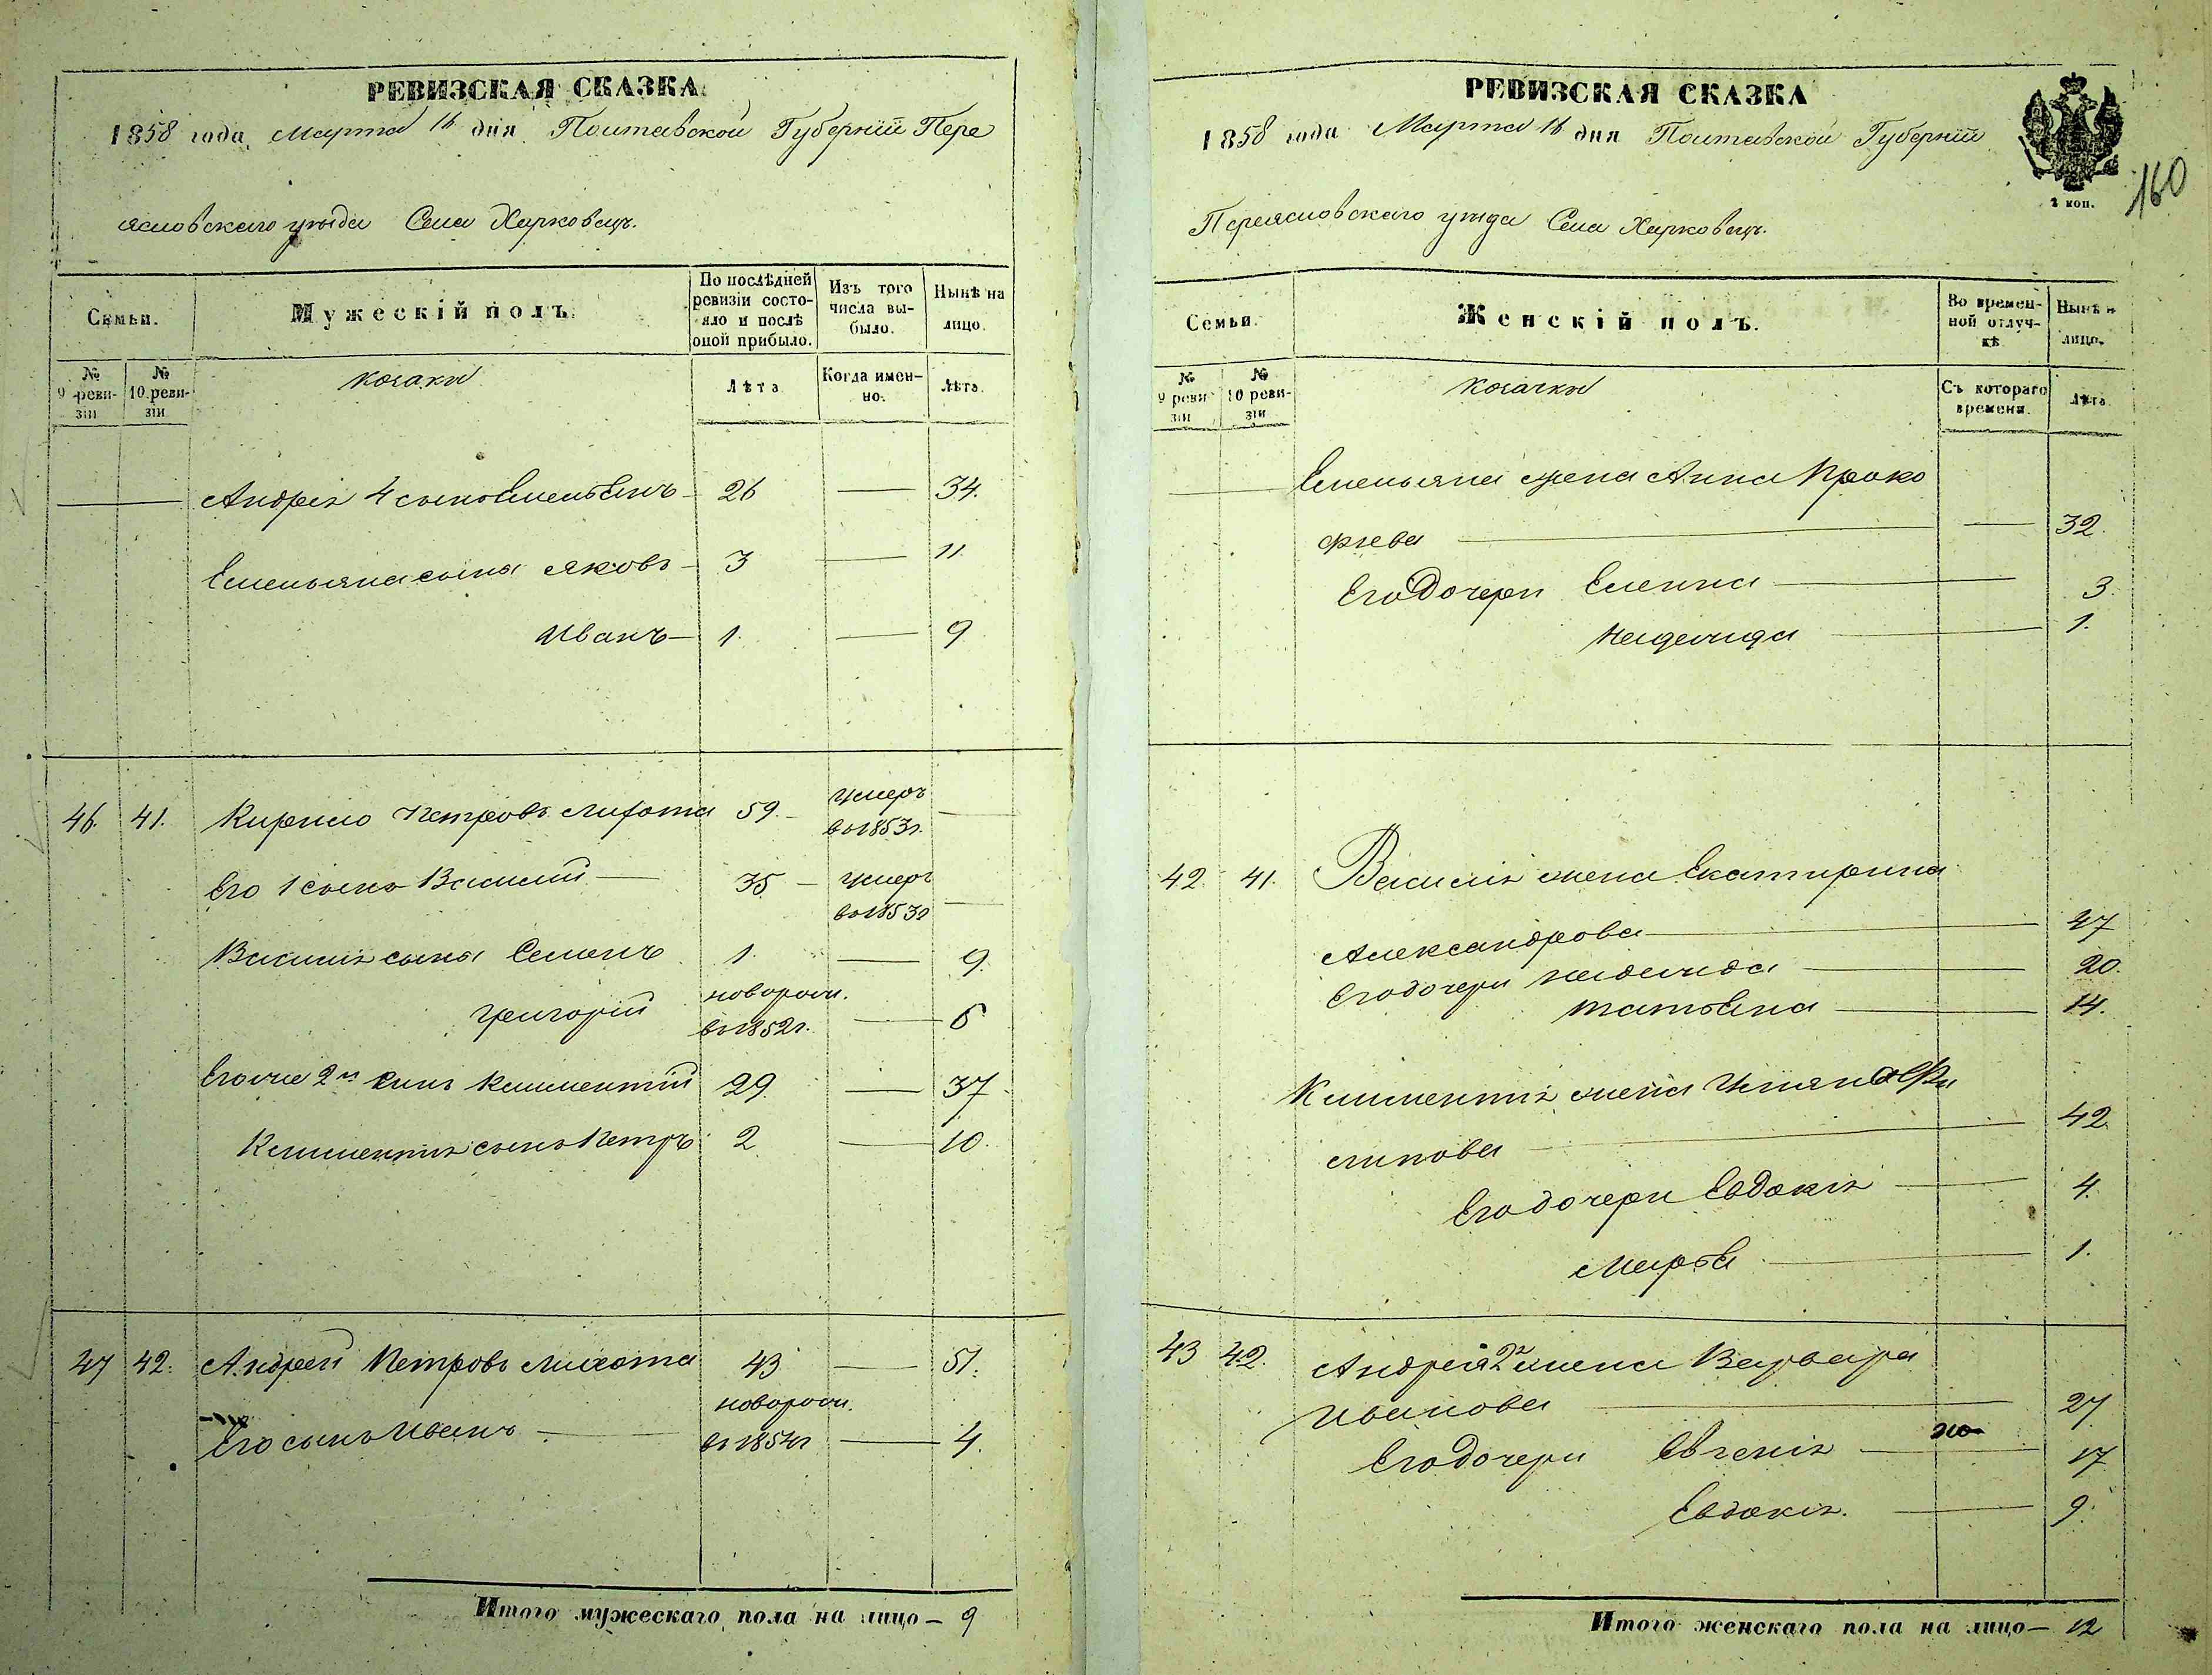 РЕВИЗСКАЯ СКАЗКА
1858 года Марта 16 дня Полтавской Губерніи Пере
яславскаго уѣзда Села Харковецъ.
Семьи.
Мужескій полъ.
По послѣдней ревизіи состояло и послѣ оной прибыло.
Изъ того числа выбыло.
Нынѣ на лицо.
№ 9 ревизіи
№ 10 ревизіи
козаки
Лѣта
Когда именно.
Лѣта.
Андрея 4 сынъ Емельянъ 26 — 34.
Емельяна сына Яковъ 3 — 11.
Иванъ 1. — 9
46. 41. Кирило Петровъ Лихота 59. умеръ в 1853 г. —
Его 1 сынъ Василий 35. умеръ в 1853 г. —
Василия сына Семенъ 1. — 9.
Григорий новорож. в 1852 г. — 6
Его же 2й сынъ Климентий 29. — 37
Климентия сынъ Петръ 2 — 10.
47 42. Андрей Петровъ Лихота 43 — 51.
Его сынъ Иванъ новорож. в 1854 г. — 4.
Итого мужескаго пола на лицо — 9
РЕВИЗСКАЯ СКАЗКА
2 коп.
160
1858 года Марта 16 дня Полтавской Губерніи
Переяславскаго уѣзда Села Харковецъ.
Семьи.
Женскій полъ.
Во временной отлучкѣ
Нынѣ н лицо.
№ 9 ревизіи
№ 10 ревизіи
козачки
Съ котораго времени.
Лѣта
Емельяна жена Анна Проко
фиева — 32.
Его дочери Елена 3.
1.
42. 41. Василия жена Екатирина
Александрова 47
Его дочери 20.
Татьяна 14.
Климентия жена Ульяна Фи
липова 42.
Его дочери Евдокия 4.
Марья 1.
43 42. Андрея 2я жена Варвара
Иванова 27
Его дочери Евгения 17
Евдокия. 9.
Итого женскаго пола на лицо — 12